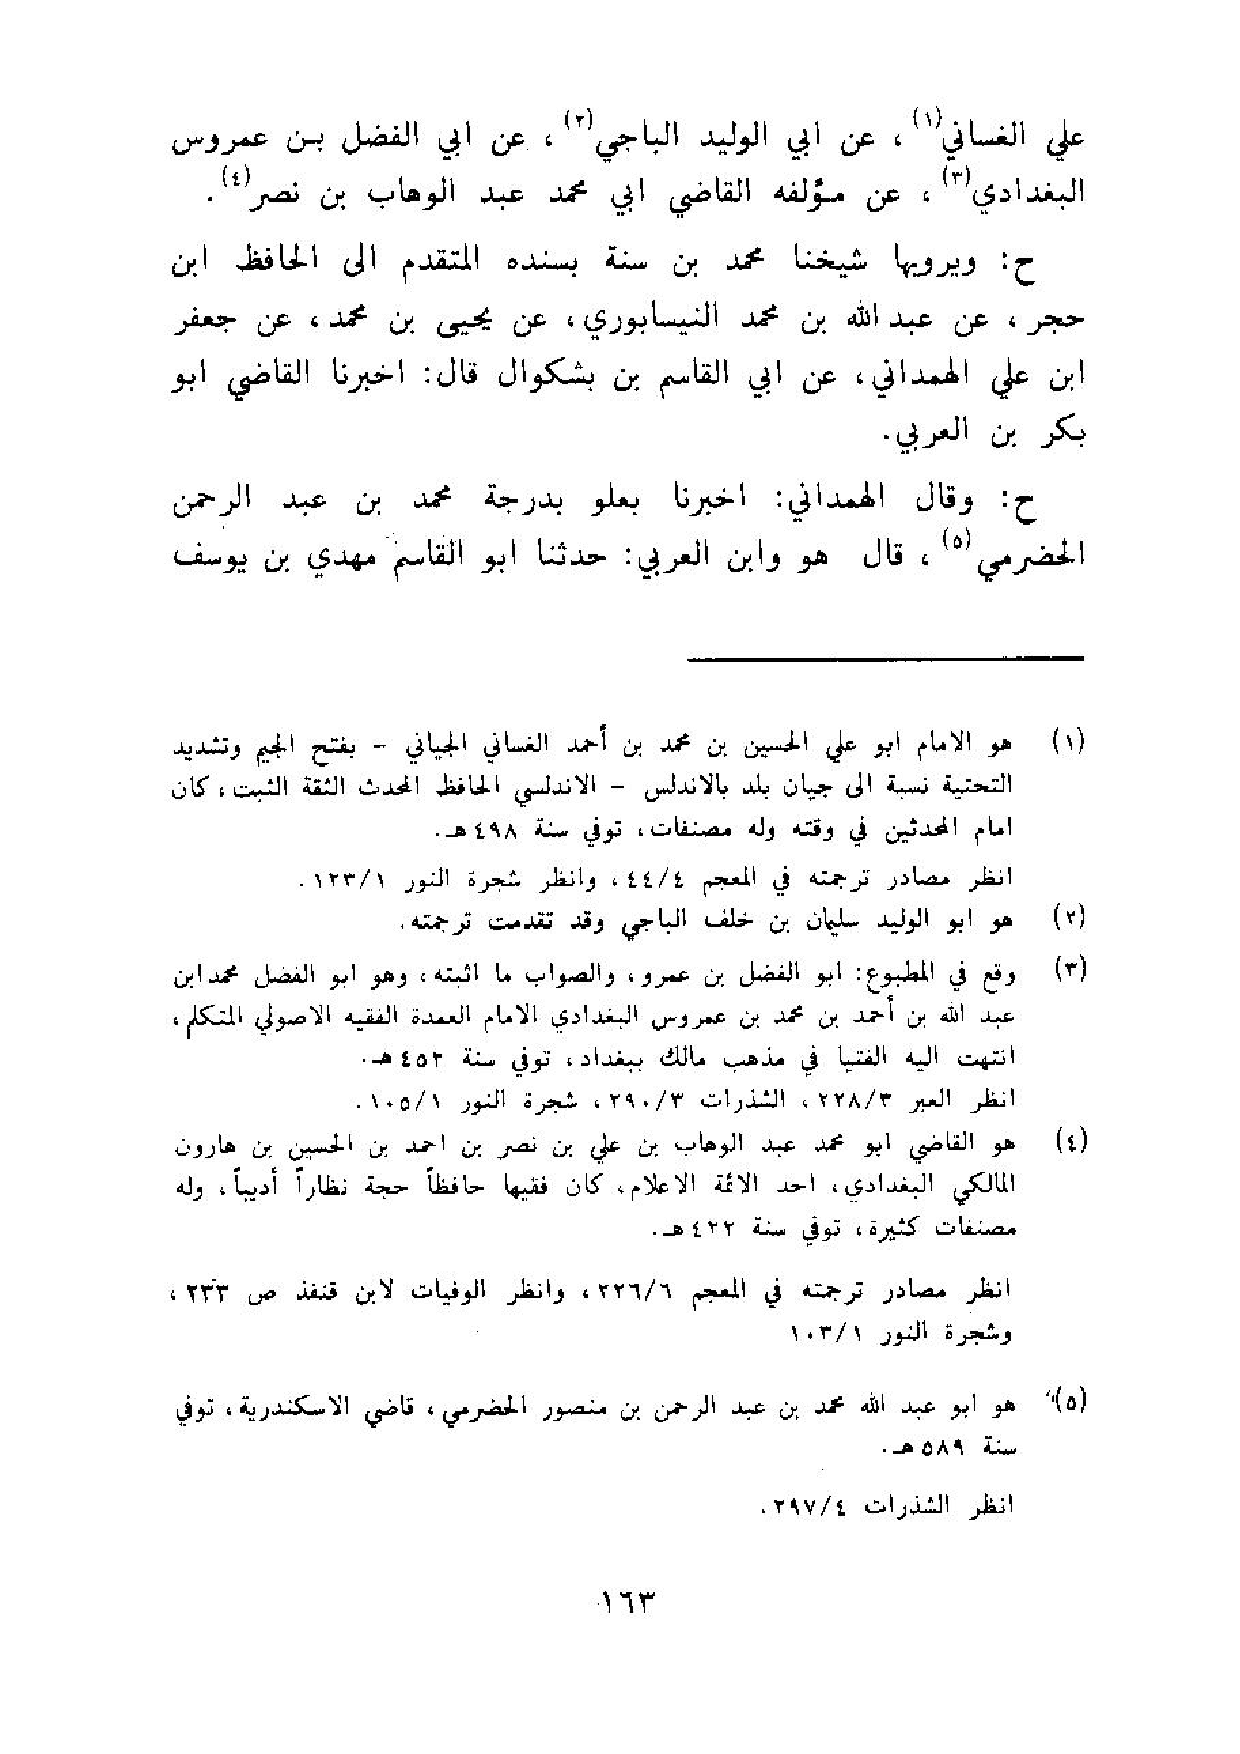 علي الغساني(١)، عن ابي الوليد الباجي(٢)، عن ابي الفضل بن عمروس
البغدادي(٣)، عن مؤلفه القاضي ابي محمد عبد الوهاب بن نصر(٤).
ح: ويرويها شيخنا محمد بن سنة بسنده المتقدم الى الحافظ ابن
حجر، عن عبد الله بن محمد النيسابوري، عن يحيى بن محمد، عن جعفر
ابن علي الهمداني، عن ابي القاسم بن بشكوال قال: اخبرنا القاضي ابو
بكر بن العربي.
ح: وقال الهمداني: اخبرنا بعلو بدرجة محمد بن عبد الرحمن
الحضرمي(٥)، قال هو وابن العربي: حدثنا ابو القاسم مهدي بن يوسف
(١) هو الامام ابو علي الحسين بن محمد بن أحمد الغساني الجياني - بفتح الجيم وتشديد
التحتية نسبة الى جيان بلد بالاندلس - الاندلسي الحافظ المحدث الثقة الثبت، كان
امام المحدثين في وقته وله مصنفات، توفي سنة ٤٩٨ هـ.
انظر مصادر ترجمته في المعجم ٤٤/٤، وانظر شجرة النور ١٢٣/١.
(٢) هو ابو الوليد سليمان بن خلف الباجي وقد تقدمت ترجمته.
(٣) وقع في المطبوع: ابو الفضل بن عمرو، والصواب ما اثبته، وهو ابو الفضل محمد ابن
عبد الله بن أحمد بن محمد بن عمروس البغدادي الامام العمدة الفقيه الاصولي المتكلم،
انتهت اليه الفتيا في مذهب مالك ببغداد، توفي سنة ٤٥٢ هـ.
انظر العبر ٢٢٨/٣، الشذرات ٢٩٠/٣، شجرة النور ١٠٥/١.
(٤) هو القاضي ابو محمد عبد الوهاب بن علي بن نصر بن احمد بن الحسين بن هارون
المالكي البغدادي، احد الائمة الاعلام، كان فقيها حافظاً حجة نظاراً أديباً، وله
مصنفات كثيرة، توفي سنة ٤٢٢ هـ.
انظر مصادر ترجمته في المعجم ٢٢٦/٦، وانظر الوفيات لابن قنفذ ص ٢٣٣،
وشجرة النور ١٠٣/١
(٥) هو ابو عبد الله محمد بن عبد الرحمن بن منصور الحضرمي، قاضي الاسكندرية، توفي
سنة ٥٨٩ هـ.
انظر الشذرات ٢٩٧/٤.
١٦٣